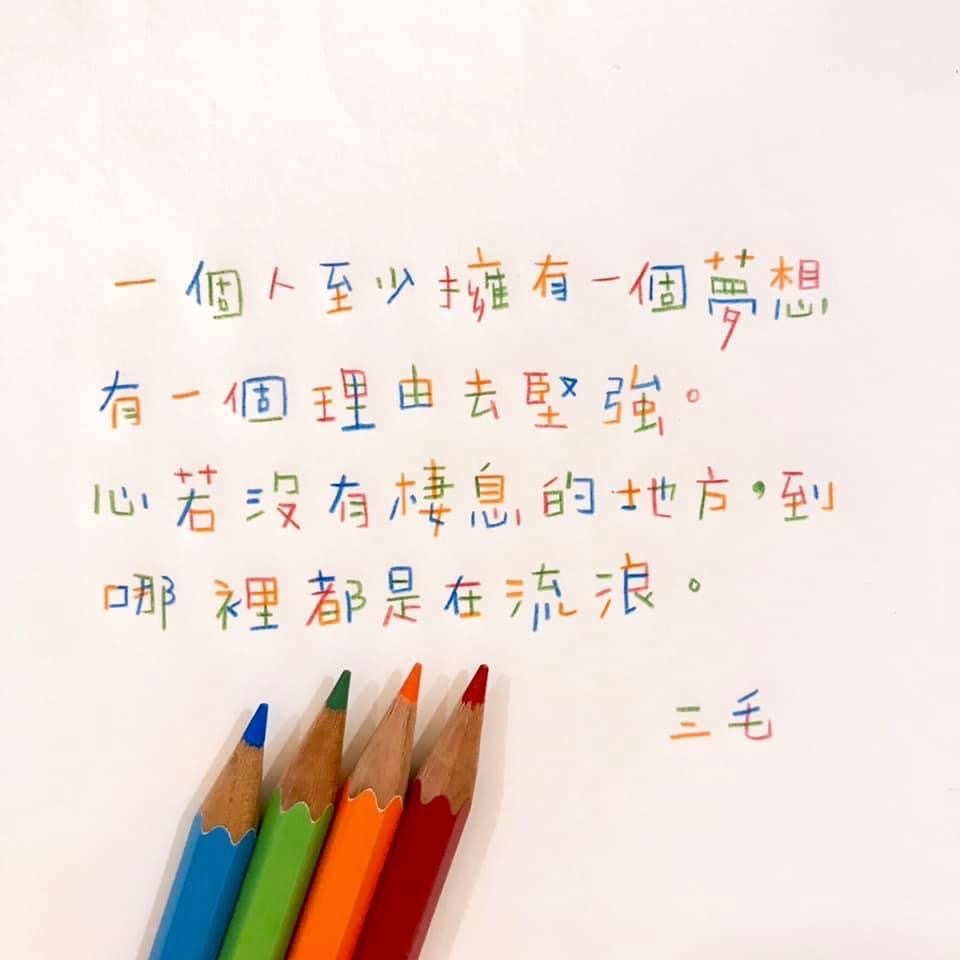 一個人至少擁有一個夢想
有一個理由去堅強。
心若沒有棲息的地方,到
哪裡都是在流浪。
三毛